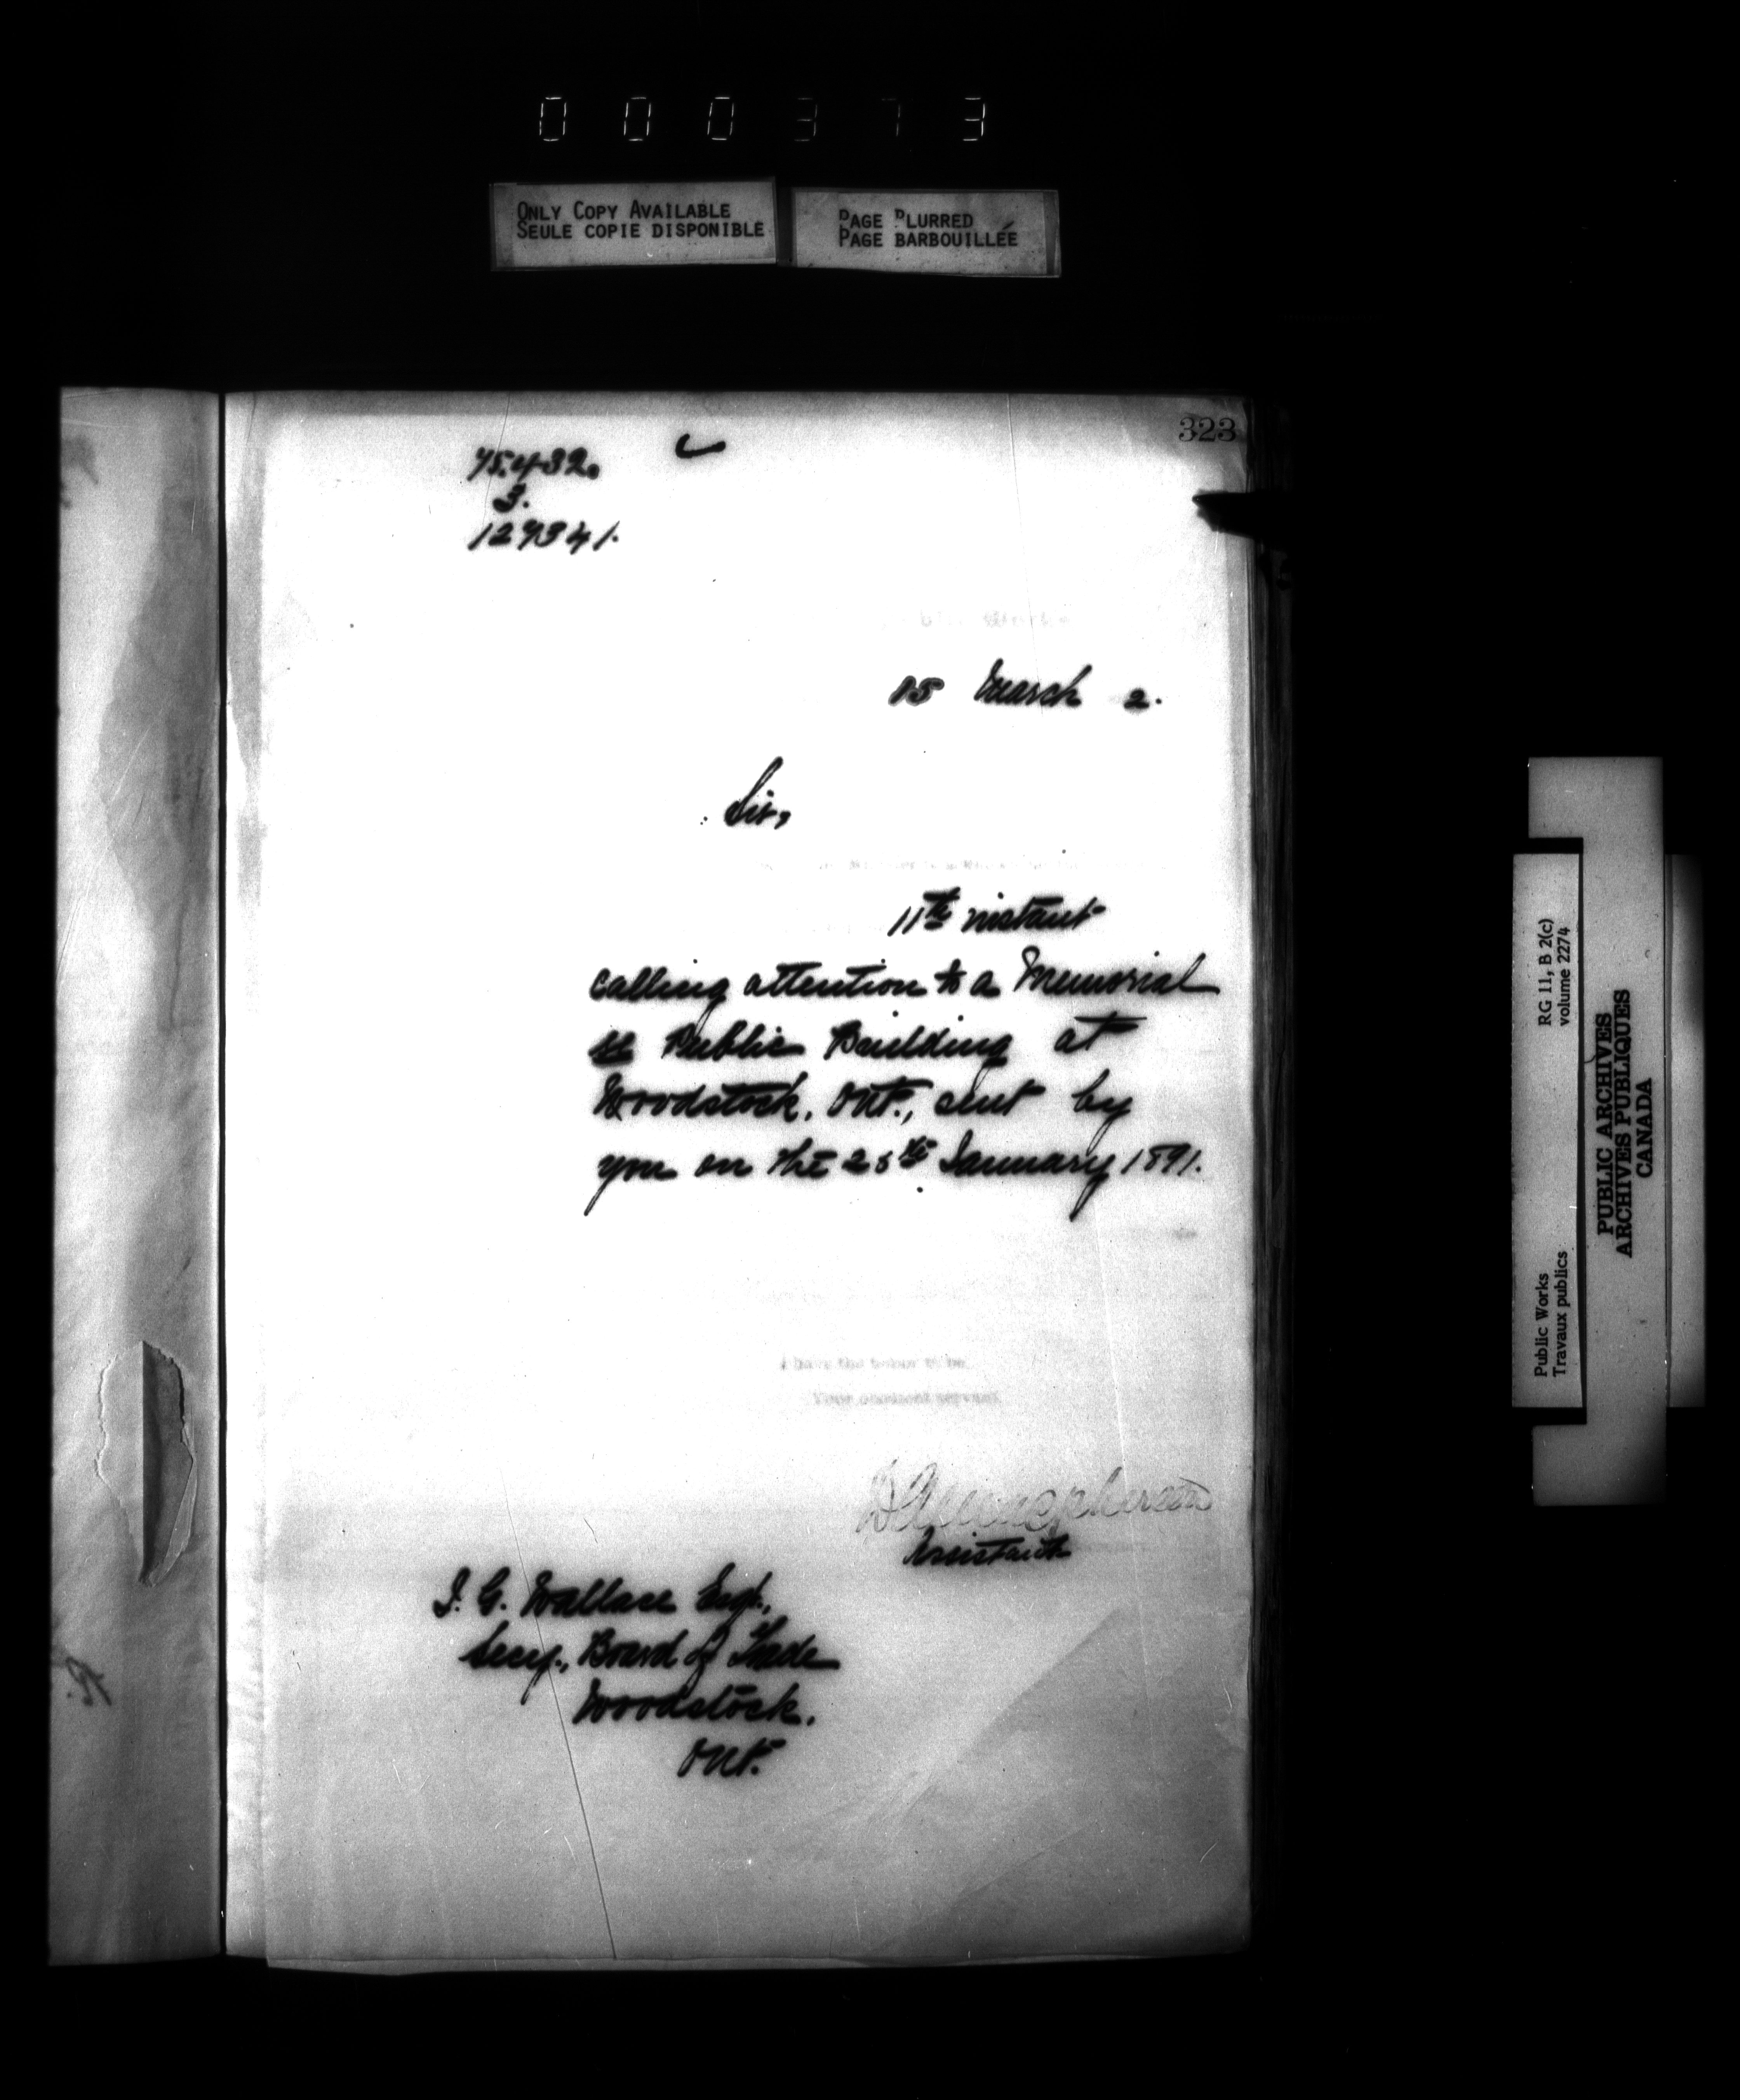 000373
ONLY COPY AVAILABLE
SEULE COPIE DISPONIBLE
PAGE BLURRED
PAGE BARBOUILLÉE
323
75.432.
3.
127341.
15 March 2.
Sir,
11th instant
calling attention to a Memorial
re Public Building at
Woodstock, Ont., sent by
you on the 28th January 1891.
I have the honor to be,
Your obedient servant
Assistant
J. G. Wallace Esqr.,
Secy., Board of Trade
Woodstock.
Ont.
Public Works
Travaux publics
RG 11, B 2(c)
volume 2274
PUBLIC ARCHIVES
ARCHIVES PUBLIQUES
CANADA